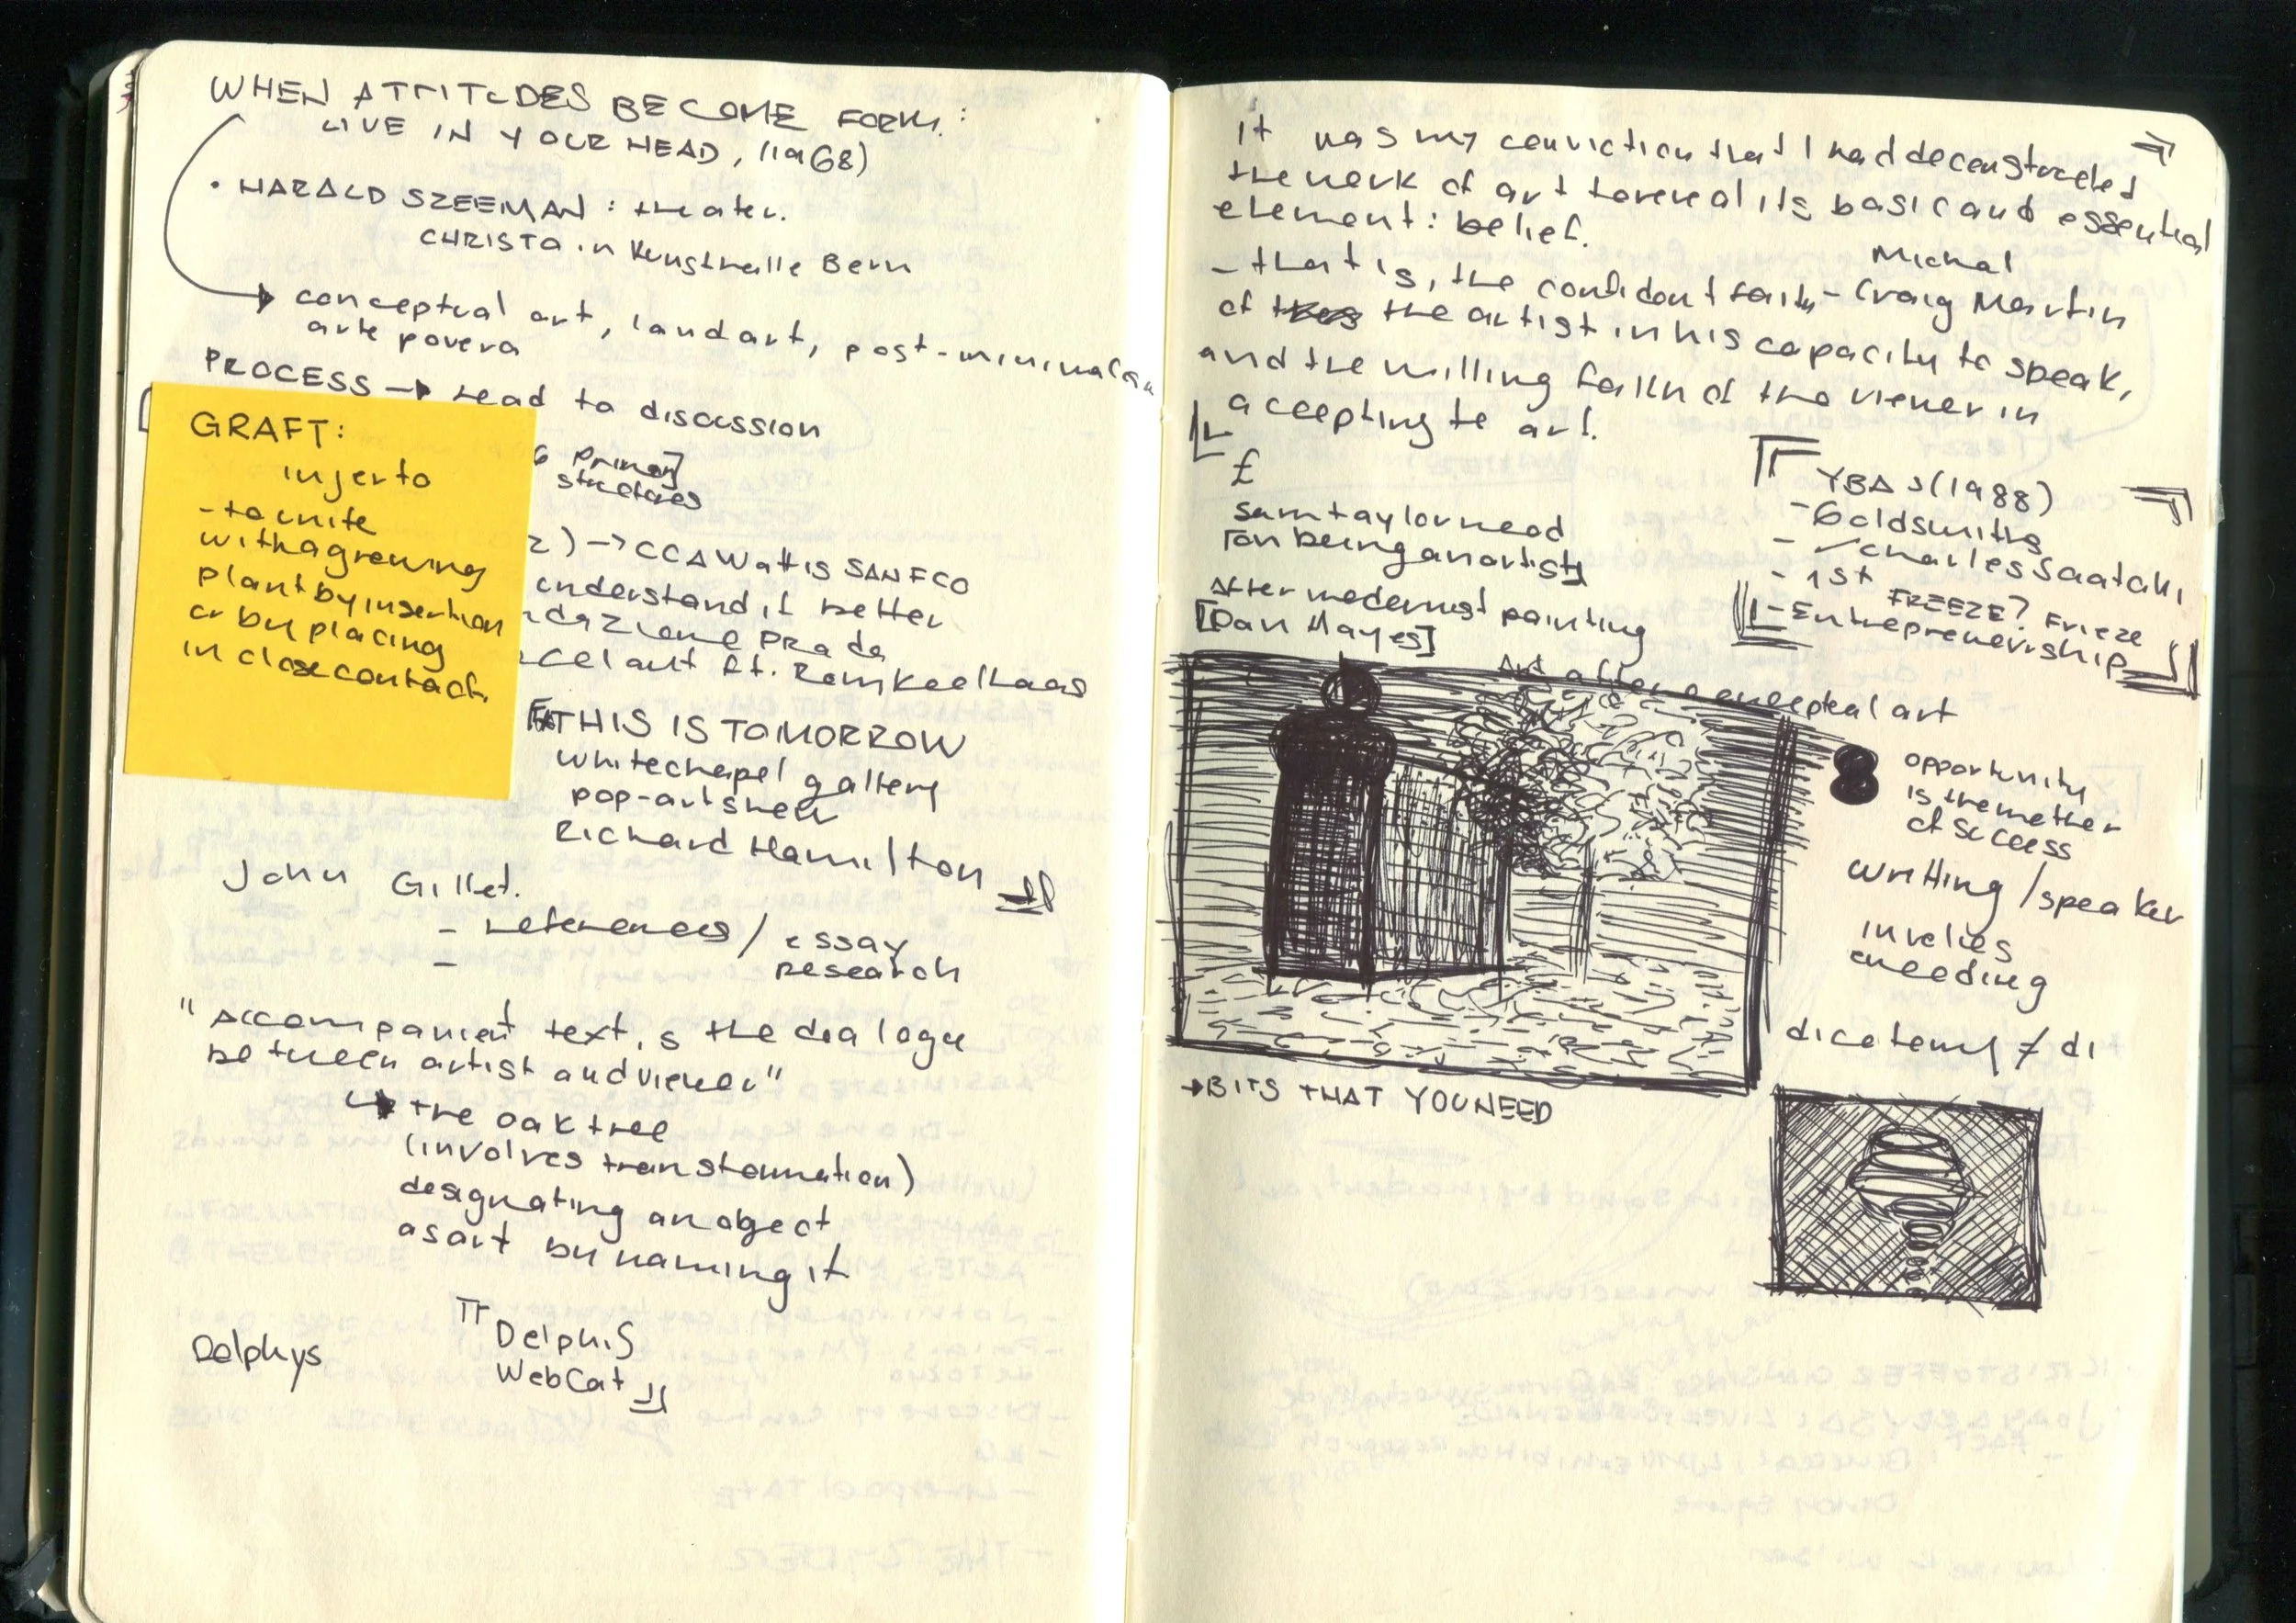 WHEN ATTITUDES BECOME FORM:
LIVE IN YOUR HEAD, (1968)
• HARALD SZEEMAN: theater.
CHRISTO in Kunsthalle Bern
conceptual art, land art, post-minimalism
arte povera
PROCESS → lead to discussion
GRAFT:
injerto
- to unite
with a growing
plant by insertion
or by placing
in close contact.
6 Primary
structures
2) → CCA Wattis SAN FCO
understand it better
dazione Prada
celant ft. Rem Koolhaas
THIS IS TOMORROW
Whitechapel gallery
pop-art show
Richard Hamilton
John Gillet.
- references / essay
- research
"Accompanient text is the dialogue
between artist and viewer"
the oak tree
(involves transformation)
designating an object
as art by naming it
Delphis
WebCat
Delphys
It was my conviction that I had deconstructed
the work of art to reveal its basic and essential
element: belief.
Michal
- that is, the confident faith - Craig Martin
of the artist in his capacity to speak,
and the willing faith of the viewer in
accepting te art.
£
Sam taylor wood
[on being an artist]
After modernist painting
[Dan Hayes]
YBAs (1988)
- Goldsmiths
- Charles Saatchi
- 1st FREEZE? Frieze
- Entrepreneurship
Art after conceptual art
8 opportunity
is the mother
of success
writting / speaker
involies
encoding
dicotemy ≠ di
→ BITS THAT YOU NEED